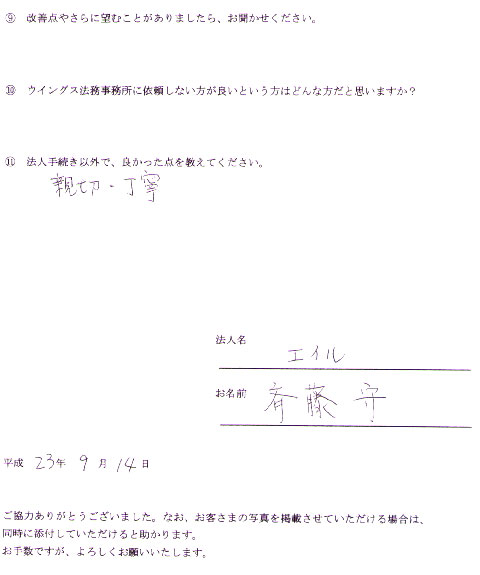 ⑨ 改善点やさらに望むことがありましたら、お聞かせください。
⑩ ウイングス法務事務所に依頼しない方が良いという方はどんな方だと思いますか？
⑪ 法人手続き以外で、良かった点を教えてください。
親切・丁寧
法人名 エイル
お名前 斉藤 守
平成 23年 9月 14日
ご協力ありがとうございました。なお、お客さまの写真を掲載させていただける場合は、
同時に添付していただけると助かります。
お手数ですが、よろしくお願いいたします。